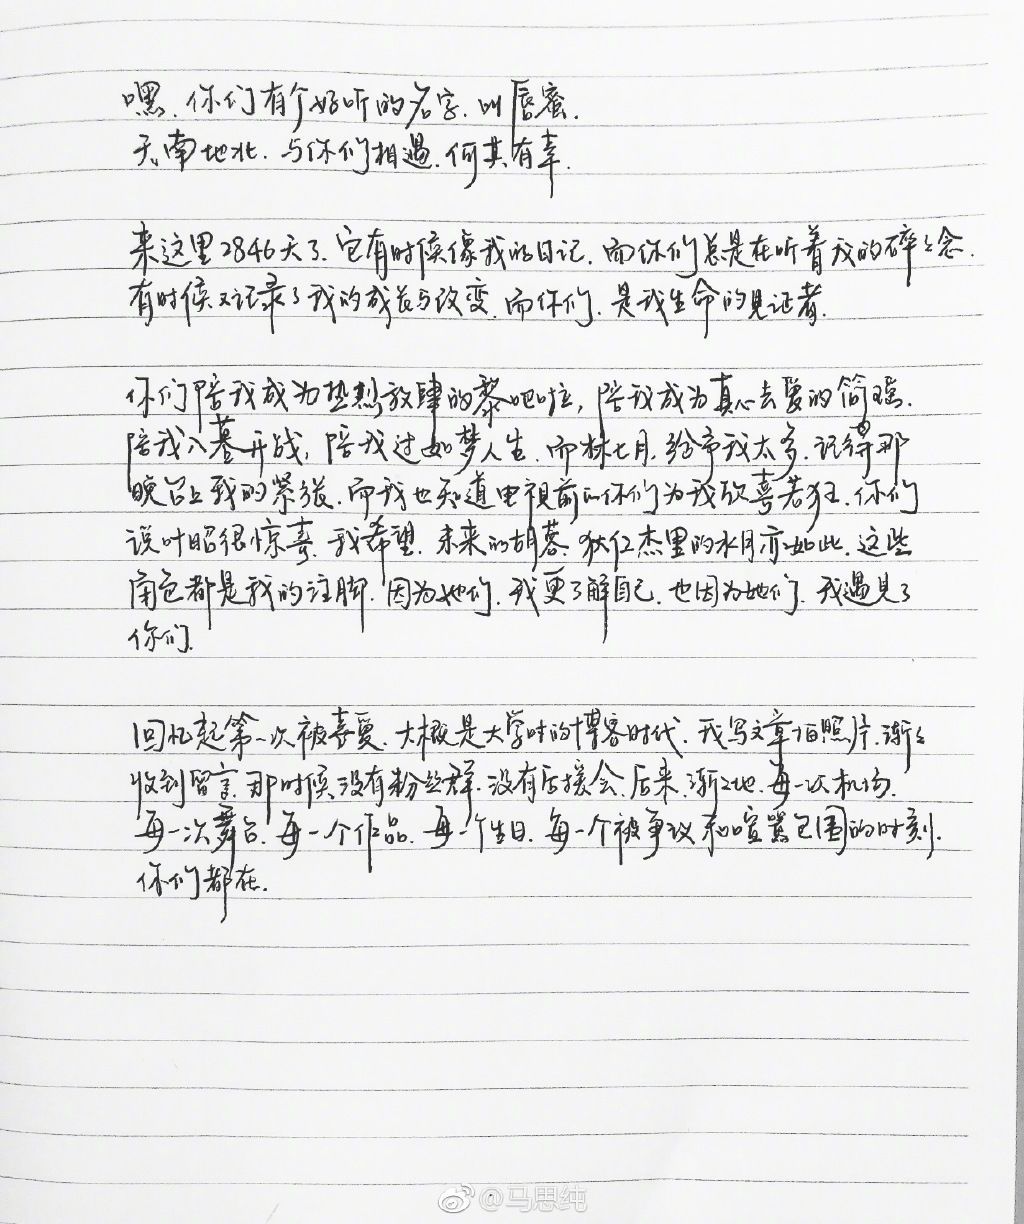 嘿.你们有个好听的名字.叫唇蜜.
天南地北.与你们相遇.何其有幸.
来这里2846天了.它有时候像我的日记.而你们总是在听着我的碎碎念.
有时候又记录了我的成长与改变.而你们.是我生命的见证者.
你们陪我成为热烈放肆的黎吧啦,陪我成为真心去爱的简瑶.
陪我入墓开战,陪我过如梦人生.而林七月.给予我太多.记得那
晚台上我的紧张.而我也知道电视前的你们为我欣喜若狂.你们
说叶昭很惊喜.我希望.未来的胡蓉.狄仁杰里的水月亦如此.这些
角色都是我的注脚.因为她们.我更了解自己.也因为她们.我遇见了
你们.
回忆起第一次被喜爱.大概是大学时的博客时代.我写文章拍照片.渐々
收到留言.那时候没有粉丝群.没有后援会.后来.渐々地.每一次机场.
每一次舞台.每一个作品.每一个生日.每一个被争议和喧嚣包围的时刻.
你们都在.
@马思纯